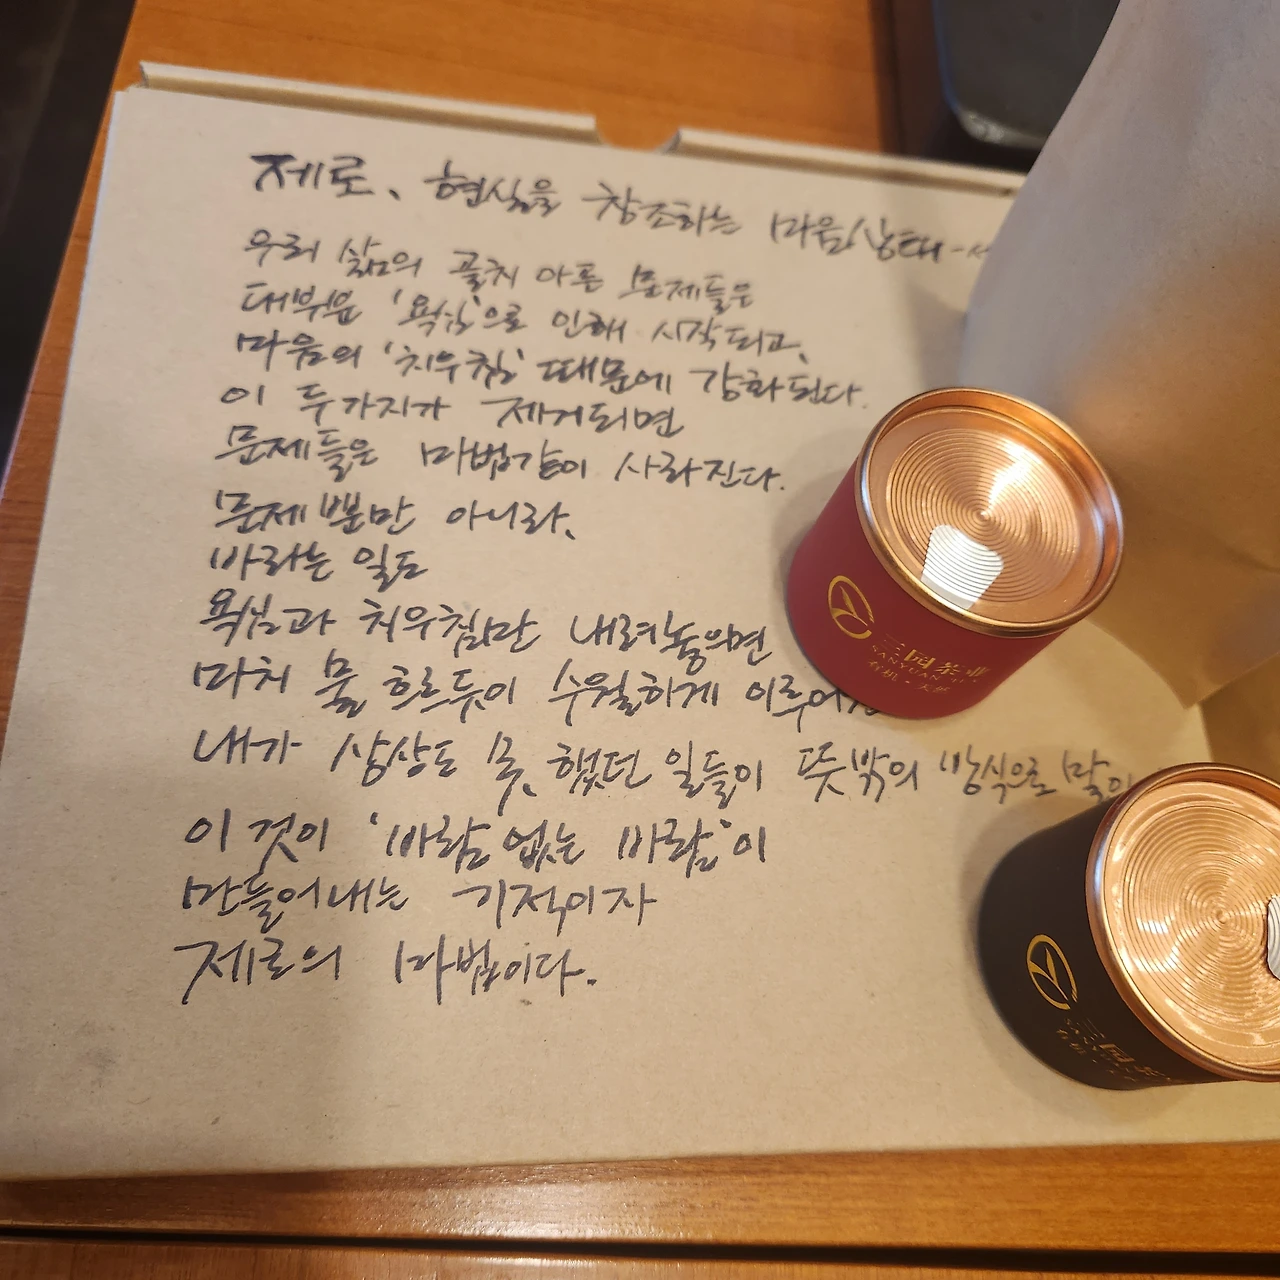 제로、 현실을 창조하는 마음상태-
우리 삶의 골치 아픈 문제들은
대부분 '욕심'으로 인해 시작되고、
마음의 '치우침' 때문에 강화된다.
이 두가지가 제거되면
문제들은 마법같이 사라진다.
문제뿐만 아니라、
바라는 일도
욕심과 치우침만 내려놓으면
마치 물 흐르듯이 수월하게 이루어
내가 상상도 못 했던 일들이 뜻밖의 방식으로 많이
이것이 '바람 없는 바람'이
만들어내는 기적이자
제로의 마법이다.
三园茶业
SANYUAN
有机·天然
三园茶